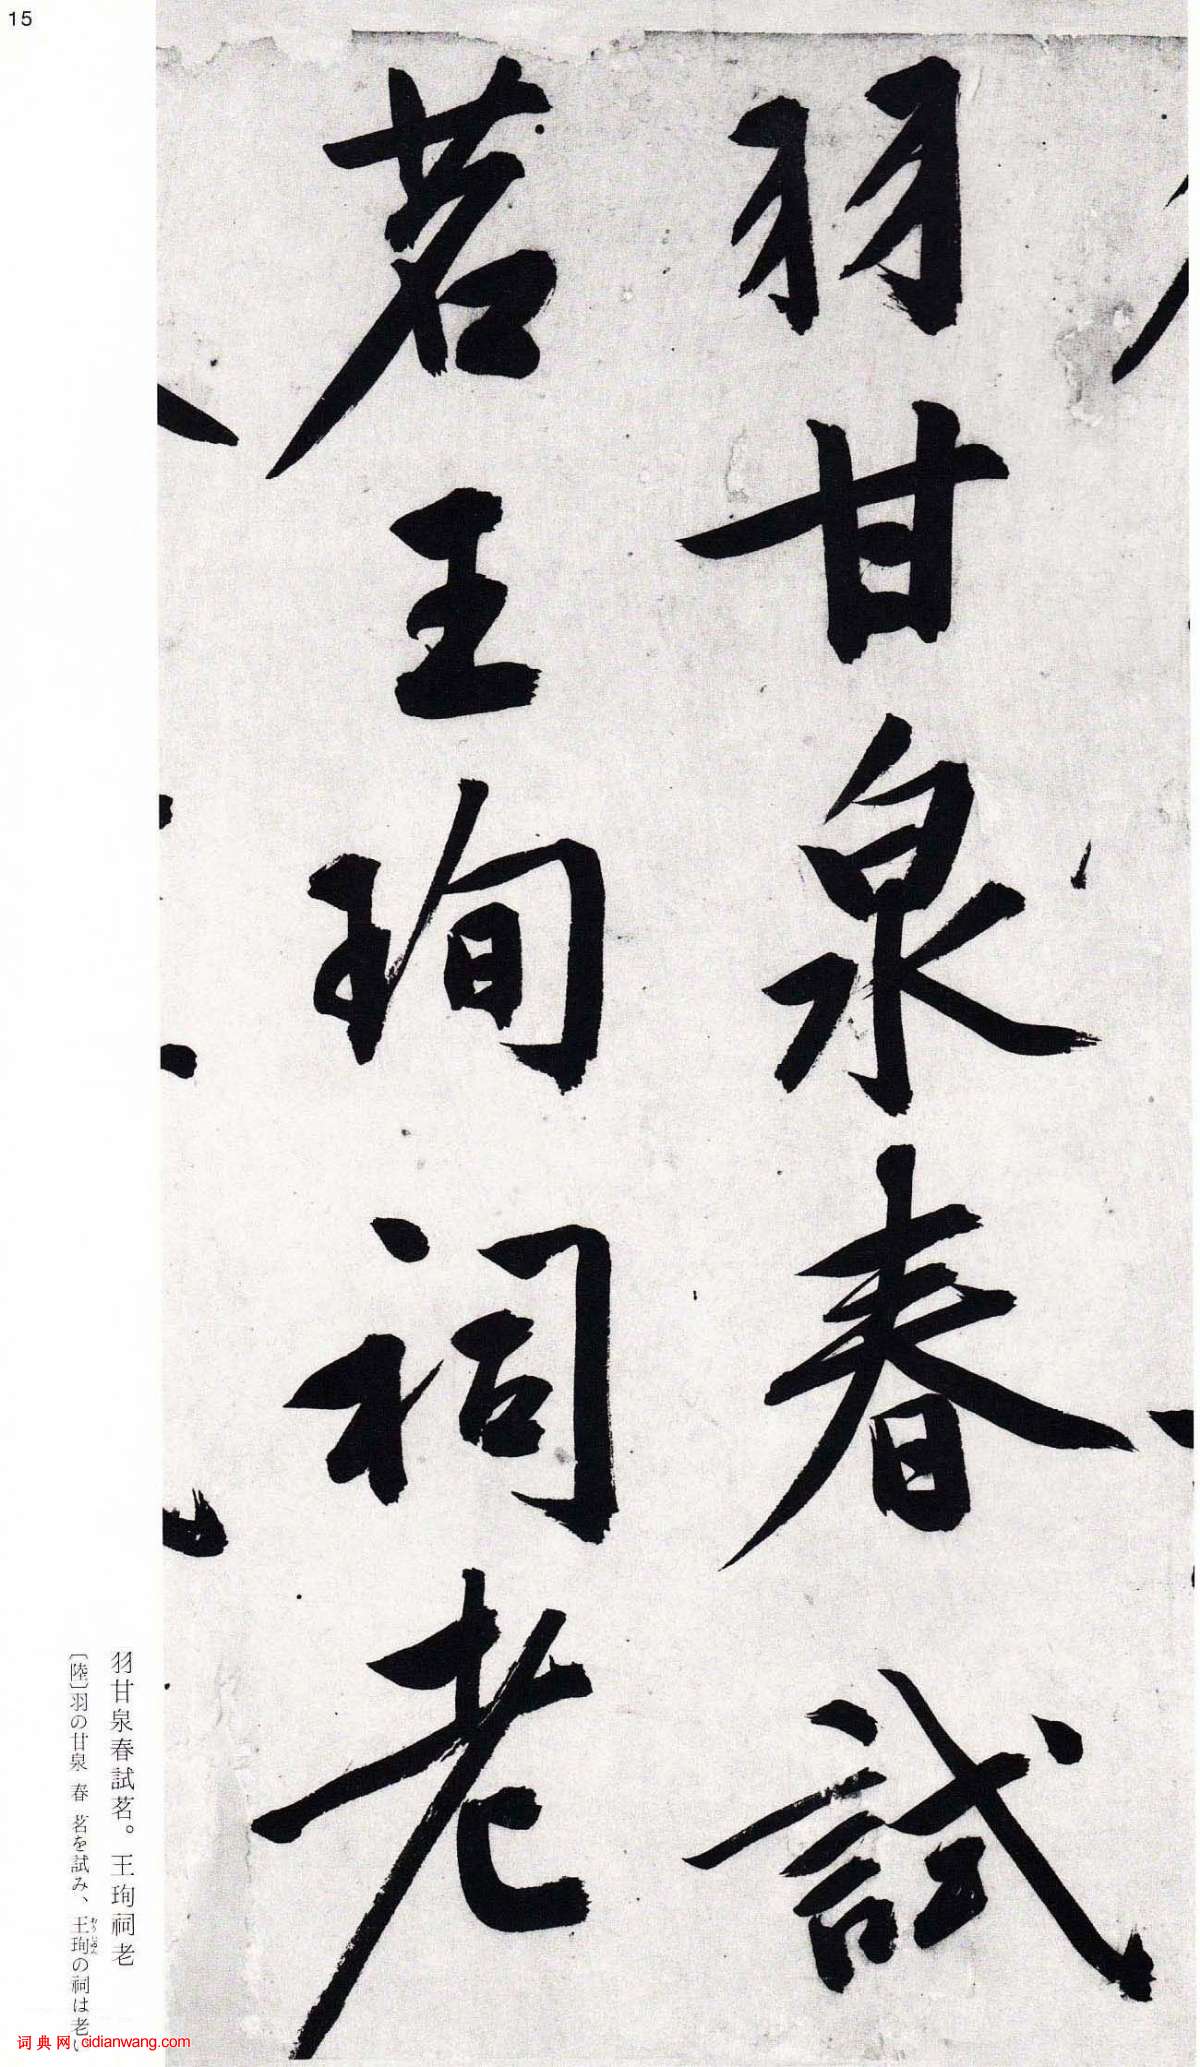 15
羽甘泉春試
茗王珣祠老
羽甘泉春試茗。王珣祠老
〔陸〕羽の甘泉 春 茗を試み、王珣の祠は老い
おうじゅん
词典网 cidianwang.com